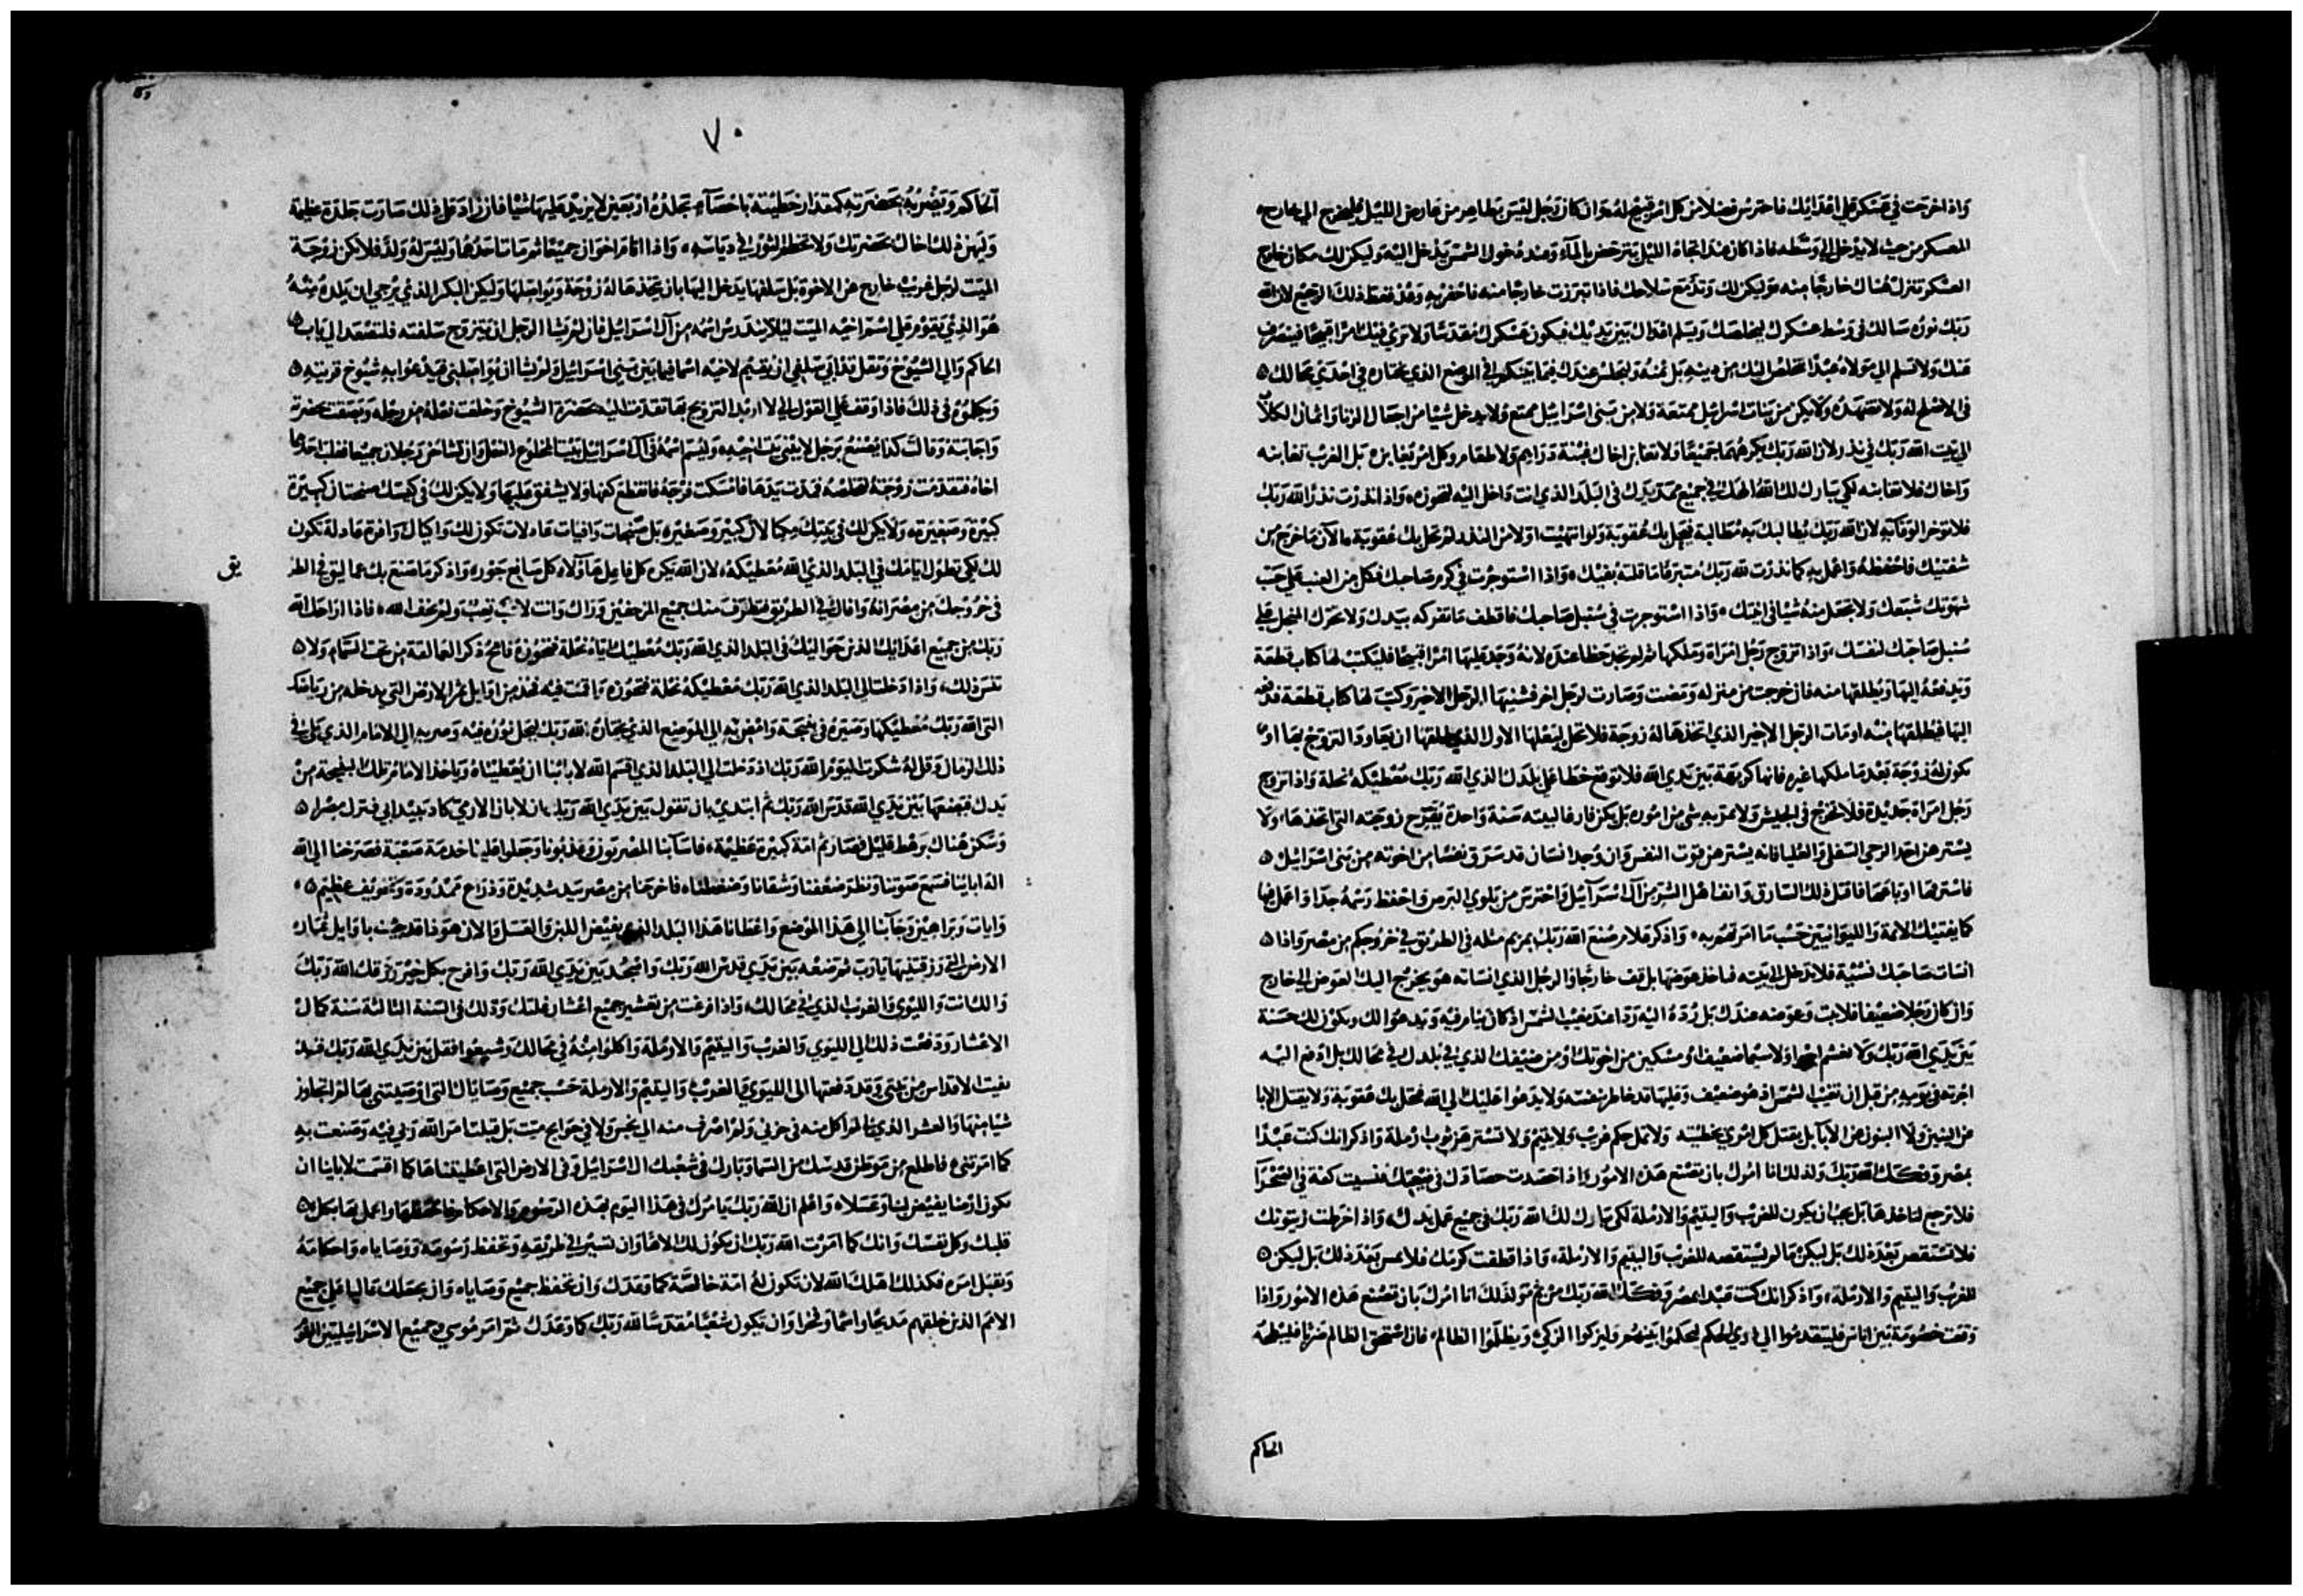 واذا خرجت في عسكر علي اعدائك فاحترس فضلا من كل امر قبيح له وان كان رجل ليس بطاهر من عارض الليل فليخرج الي خارج
العسكر من حيث لا يدخل الي وسطه فاذا كان عند اتجاه الليل يترحض بالمآء وعند دخول الشمس يدخل اليه وليكن لك مكان خارج
العسكر تنزل هناك خارجا منه وليكن لك وتد مع سلاحك فاذا تبرزت خارجا منه فاحفر به وعد فغط ذلك الرجيع لان الله
ربك نوره سالك في وسط عسكرك ليخلصك ويسلم اعداك بين يديك فيكون عسكرك مقدسا ولا يري فيك امرا قبيحا فينصرف
عنك ولا تسلم الي مولاه عبدا تخلص اليك من دينه بل عنه وليجلس عندك فيما بينكم في الموضع الذي يختاره في احدي محالك
في الاصلح له ولا تضهده ولا يكن من بنات اسرائيل ممتعة ولا من بني اسرائيل ممتع ولا يدخل شيا من اجعال الزنا واثمان الكلاب
الي بيت الله ربك في نذر لان الله ربك يكرههما جميعا ولا تعاين اخاك بعينة دراهم ولا طعام وكل امر يعاين به بل الغرب تعاينه
واخاك فلا تعاينه لكي يبارك لك الله الهك في جميع ممد يدك في البلد الذي انت داخل اليه لتحوزه واذا نذرت نذرا لله ربك
فلا توخر الوفا به لان الله ربك يطالبك به مطالبة فيحل بك عقوبة ولو انتهيت اولا من النذر لم تحل بك عقوبة ما الآن ما خرج من
شفتيك فاحفظه واعمل به كما نذرت لله ربك متبرعا ما قلته بفيك واذا استوجرت في كرم صاحبك فكل من العنب علي حسب
شهوتك شبعك ولا تجعل منه شيا في انيتك واذا استوجرت في سنبل صاحبك فاقطف ما تفركه بيدك ولا تحرك المنجل علي
سنبل صاحبك لنفسك واذا تزوج رجل امراة وملكها ثم لم تجد حظا عنده لانه وجد عليها امرا قبيحا فليكتب لها كتاب قطعة
ويدفعه اليها ويطلقها منه فان خرجت من منزله ومضت وصارت لرجل اخر فشنيها الرجل الاخير وكتب لها كتاب قطعة فدفعه
اليها فيطلقها منه او مات الرجل الاخير الذي اتخذها له زوجة فلا تحل لبعلها الاول الذي طلقها ان يعاود التزوج بها او
تكون له زوجة بعد ما ملكها غيره فانها كريهة بين يدي الله فلا توقع خطا علي بلدك الذي الله ربك معطيكه نحلة واذا تزوج
رجل امراة جديدة فلا تخرج في الجيش ولا يمر به شي من اموره بل يكن فارغا لبيته سنة واحدة يفرح زوجته التي اتخذها ولا
يسترهن احد الرحي السفلي والعليا فانه يسترهن قوت النفس وان وجد انسان قد سرق نفسا من اخوته من بني اسرائيل
فاسترقها او باعها فاقتل ذلك السارق وانف اهل الشر من آل اسرآئيل واحترس من بلوي البرص واحفظ رسمه جدا واعمل بها
كما يفتيك الائمة والليوانيين حسب ما امرتهم به واذكر ما صنع الله ربك بمريم مثله في الطريق في خروجكم من مصر واذا
انسات صاحبك نسئية فلا تدخل الي بيته فتاخذ عوضها بل قف خارجا والرجل الذي انساته هو يخرج اليك العوض الي خارج
وان كان رجلا ضعيفا فلا بت وعوضه عندك بل رده اليه ردا عند مغيب الشمس اذ كان ينام فيه ويدعوا لك ويكون لك حسنة
بين يدي الله ربك ولا تغشم اجيرا ولا سيما ضعيف او مسكين من اخوتك او من ضيفك الذي في بلدك في محالك بل ادفع اليه
اجرته في يومه من قبل ان تغيب الشمس اذ هو ضعيف وعليها قد خاطر بنفسه ولا يدعوا عليك الي الله فتحل بك عقوبة ولا يقتل الابا
عن البنين ولا البنون عن الابآ بل يقتل كل امري بخطيته ولا تمل حكم غريب ولا يتيم ولا تسترهن ثوب ارملة واذكر انك كنت عبدا
بمصر وفكك الله ربك ولذلك انا امرك بان تصنع هذه الامور واذا حصدت حصادك في ضيعتك فنسيت كفة في الصحرآ
فلا ترجع لتاخذها بل يجب ان يكون للغريب واليتيم والارملة لكي يبارك لك الله ربك في جميع عمل يدك واذا خرطت زيتونك
فلا تستقص بعد ذلك بل ليكن ما لم يستقصه للغريب واليتيم والارملة واذا قطفت كرمك فلا تمس بعد ذلك بل ليكن
للغريب واليتيم والارملة واذكر انك كنت عبدا بمصر وفكك الله ربك من ثم ولذلك انا امرك بان تصنع هذه الامور واذا
وقعت خصومة بين اناس فليتقدموا الي ذوي الحكم ليحكموا بينهم وليزكوا الزكي ويظلموا الظالم فان استحق الظالم ضربا فليبطحه
الحاكم
٧٠
الحاكم ويضربه بحضرته كمقدار خطيئة باحصآء يجلده اربعين لا يزيد عليها شيا فان زاد علي ذلك صارت جلدة عظيمة
ويهن ذلك اخاك بحضرتك ولا تخطم الثور في دياسه واذا اقام اخوان جميعا ثم مات احدهما وليس له ولد فلا تكن زوجة
الميت لرجل غريب خارج عن الاخوة بل سلفها يدخل اليها بان يتخذها له زوجة ويواصلها وليكن البكر الذي يرجي ان يلده منه
هو الذي يقوم علي اسم اخيه الميت ليلا يندرس اسمه من آل اسرائيل فان لم يشا الرجل ان يتزوج سلفته فلتصعد الي باب
الحاكم والي الشيوخ وتقل قد ابي سلفي ان يقيم لاخيه اسما فيما بين بني اسرائيل ولم يشا ان يواصلني فيدعوا به شيوخ قريته
ويكلموه في ذلك فاذا وقف علي القول اني لا اريد التزويج بها تقدمت اليه بحضرة الشيوخ وخلعت نعله من رجله وبصقت بحضرته
واجابته وقالت كذا يصنع برجل لا يبني بيت اخيه وليسم اسمه في آل اسرائيل بيت المخلوع النعل وان تشاخر رجلان جميعا فغلب احدهما
اخاه فتقدمت زوجته لتخلصه فمدت يدها فامسكت فرجه فاقطع كفها ولا يشفق عليها ولا يكن لك في كيسك صنجتان كبيرة
كبيرة وصغيرة ولا يكن لك في بيتك مكيالان كبير وصغير بل صنجات وافيات عادلات تكون لك واكيال وافرة عادلة تكون
لك لكي تطول ايامك في البلد الذي الله معطيكه لان الله يكره كل فاعل هآولاء كل صانع جور واذكر ما صنع بك عماليق في الطر
يق
في خروجك من مصر انه وافاك في الطريق فتطرف منك جميع المزحفين وراك وانت لاغب تعب ولم يخف الله فاذا اراحك الله
ربك من جميع اعدائك الذين حواليك في البلد الذي الله ربك معطيك اياه نحلة لتحوزه فامح ذكر العمالقة من تحت السمآء ولا
تنس ذلك واذا دخلت الي البلد الذي الله ربك معطيكه نحلة فتحوزه واقمت فيه فخذ من اوايل ثمر الارض التي يدخله من ريافك
التي الله ربك معطيكها وصيره في بنيجة وامض به الي الموضع الذي يختاره الله ربك ليحل نوره فيه وصر به الي الامام الذي يكن في
ذلك الزمان وقل له شكرت اليوم الله ربك اذ دخلت الي البلد الذي اقسم الله لابائنا ان يعطيناه وياخذ الامام تلك البنيجة من
يدك فيضعها بين يدي الله قدس الله ربك ثم ابتدي بان تقول بين يدي الله ربك ان لابان الارمني كاد يبيد ابي فنزل مصر
وسكن هناك برهط قليل فصار ثم امة كبيرة عظيمة فاسآ بنا المصريون وعذبونا وجعلوا علينا خدمة صعبة فصرخنا الي الله
اله ابائينا فسمع صوتنا ونظر ضعفنا وشقانا وضغطنا فاخرجنا من مصر بيد شديدة وذراع ممدودة وتخويف عظيم
وايات وبراهين وجآ بنا الي هذا الموضع واعطانا هذا البلد الذي يفيض اللبن والعسل والان هو ذا قد جيت باوايل ثمار
الارض التي رزقتنيها يا رب ثم تضعه بين يدي قدس الله ربك واسجد بين يدي الله ربك وافرح بكل خير رزقك الله ربك
والك انت والليوي والغريب الذي في محالك واذا فرغت من تعشير جميع اعشار غلتك وذلك في السنة الثالثة سنة كمال
الاعشار ودفعت ذلك الي الليوي والغريب واليتيم والارملة واكلوا منه في محالك وشبعوا فقل بين يدي الله ربك قد
نفيت الاقداس من بيتي وقد دفعتها الي الليوي والغريب واليتيم والارملة حسب جميع وصاياك التي اوصيتني بها لم اتجاوز
شيا منها والعشر الذي لم اكل منه في حزني ولم اصرف منه الي نجس ولا في حوايج ميت بل قبلت امر الله ربي فيه وصنعت به
كما امرتني فاطلع من موطن قدسك من السما وبارك في شعبك آل اسرائيل وفي الارض التي اعطيتناها كما اقسمت لابائنا ان
تكون ارضا يفيض لبنا وعسلا واعلم ان الله ربك يامرك في هذا اليوم بهذه الرسوم والاحكام فاحفظها واعمل بها بكل
قلبك وكل نفسك وانك كما امرت الله ربك ان يكون لك الاها وان تسير في طريقه وتحفظ رسومه ووصاياه واحكامه
وتقبل امره فكذلك اهلك الله لان تكون له امة خالصة كما وعدك وان تحفظ جميع وصاياه وان يجعلك عاليا علي جميع
الامم الذين خلقهم مديحا واسما وفخرا وان تكون شعبا مقدسا لله ربك كما وعدك ثم امر موسي وجميع الاسرائيليين القوم